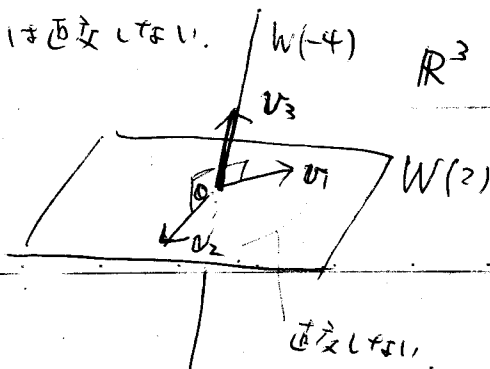 は直交しない.
W(-4)
ℝ³
v₃
v₁
W(2)
0
v₂
直交しない.